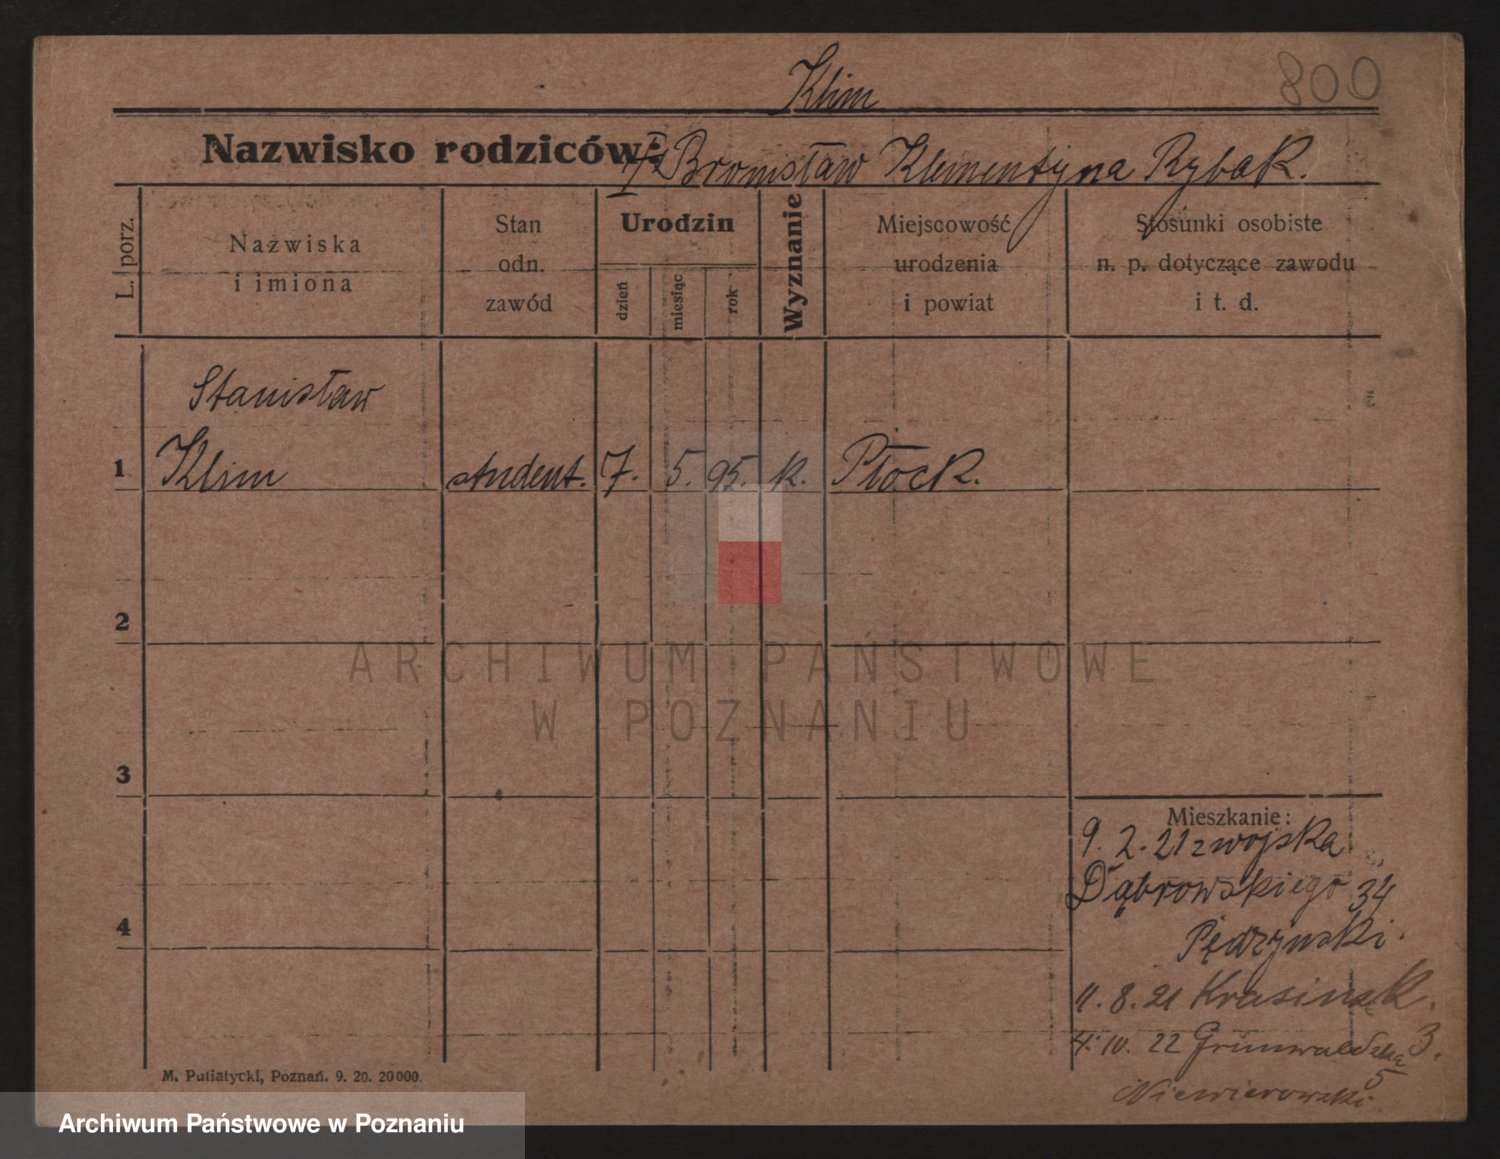 Klim
800
Nazwisko rodziców:
Bronisław Klementyna Rybak.
L. porz.
Nazwiska
i imiona
Stan
odn.
zawód
Urodzin
dzień
miesiąc
rok
Wyznanie
Miejscowość
urodzenia
i powiat
Stosunki osobiste
n. p. dotyczące zawodu
i t. d.
Stanisław
1 Klim student. 7. 5. 95. k. Płock.
2
ARCHIWUM PAŃSTWOWE
W POZNANIU
3
Mieszkanie:
9. 2. 21 z wojska
Dąbrowskiego 34
4
Pędzynski.
11. 8. 21 Krasinsk. 3.
4. 10. 22 Grunwaldzka 5
Niewierowski
M. Putiatycki, Poznań. 9. 20. 20000.
Archiwum Państwowe w Poznaniu